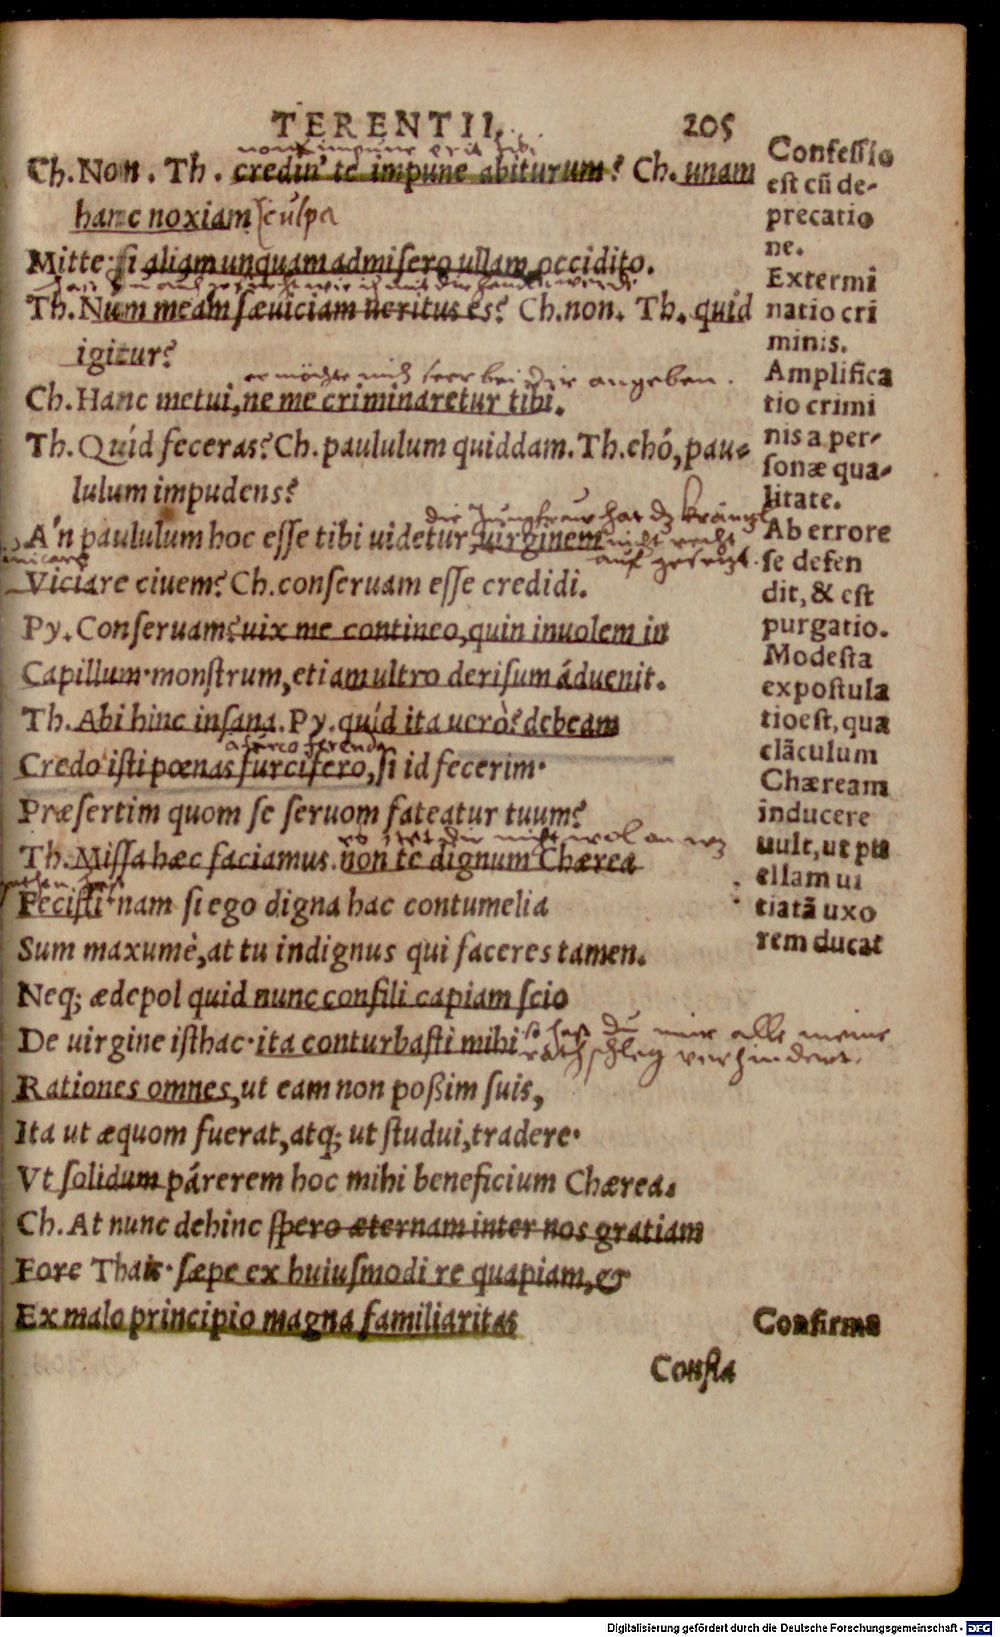 TERENTII.
205
non impune erit tibi
Ch. Non. Th. credin' te impune abiturum? Ch. unam
hanc noxiam culpa
Mitte· si aliam unquam admisero ullam, occidito.
Th. Num meam sæuiciam ueritus es? Ch. non. Th. quid
igitur?
er möchte mich bei dir angeben.
Ch. Hanc metui, ne me criminaretur tibi.
Th. Quid feceras? Ch. paululum quiddam. Th. ehó, pau-
lulum impudens?
die Jungfraw hat dz kräntzl
A'n paululum hoc esse tibi uidetur, uirginem nitt recht
auf gesetzt.
Viciare ciuem? Ch. conseruam esse credidi.
Py. Conseruam? uix me contineo, quin inuolem in
Capillum· monstrum, etiam ultro derisum áduenit.
Th. Abi hinc insana. Py. quid ita uerò? debeam
a furca ferenda
Credo isti pœnas furcifero, si id fecerim·
Præsertim quom se seruom fateatur tuum?
Th. Missa hæc faciamus. non te dignum Chærea
Fecisti· nam si ego digna hac contumelia
Sum maxumè, at tu indignus qui faceres tamen.
Neq; ædepol quid nunc consili capiam scio
De uirgine isthac· ita conturbasti mihi so hast du mir alle meine
rathschleg verhindert.
Rationes omnes, ut eam non poßim suis,
Ita ut æquom fuerat, atq; ut studui, tradere·
Vt solidum párerem hoc mihi beneficium Chærea.
Ch. At nunc dehinc spero æternam inter nos gratiam
Fore Thais· sæpe ex huiusmodi re quapiam, &
Ex malo principio magna familiaritas
Confla
Confessio
est cũ de-
precatio
ne.
Extermi
natio cri
minis.
Amplifica
tio crimi
nis a per-
sonæ qua-
litate.
Ab errore
se defen
dit, & est
purgatio.
Modesta
expostula
tio est, qua
clãculum
Chæream
inducere
uult, ut pu
ellam ui
tiatã uxo
rem ducat
Confirma
Digitalisierung gefördert durch die Deutsche Forschungsgemeinschaft - DFG